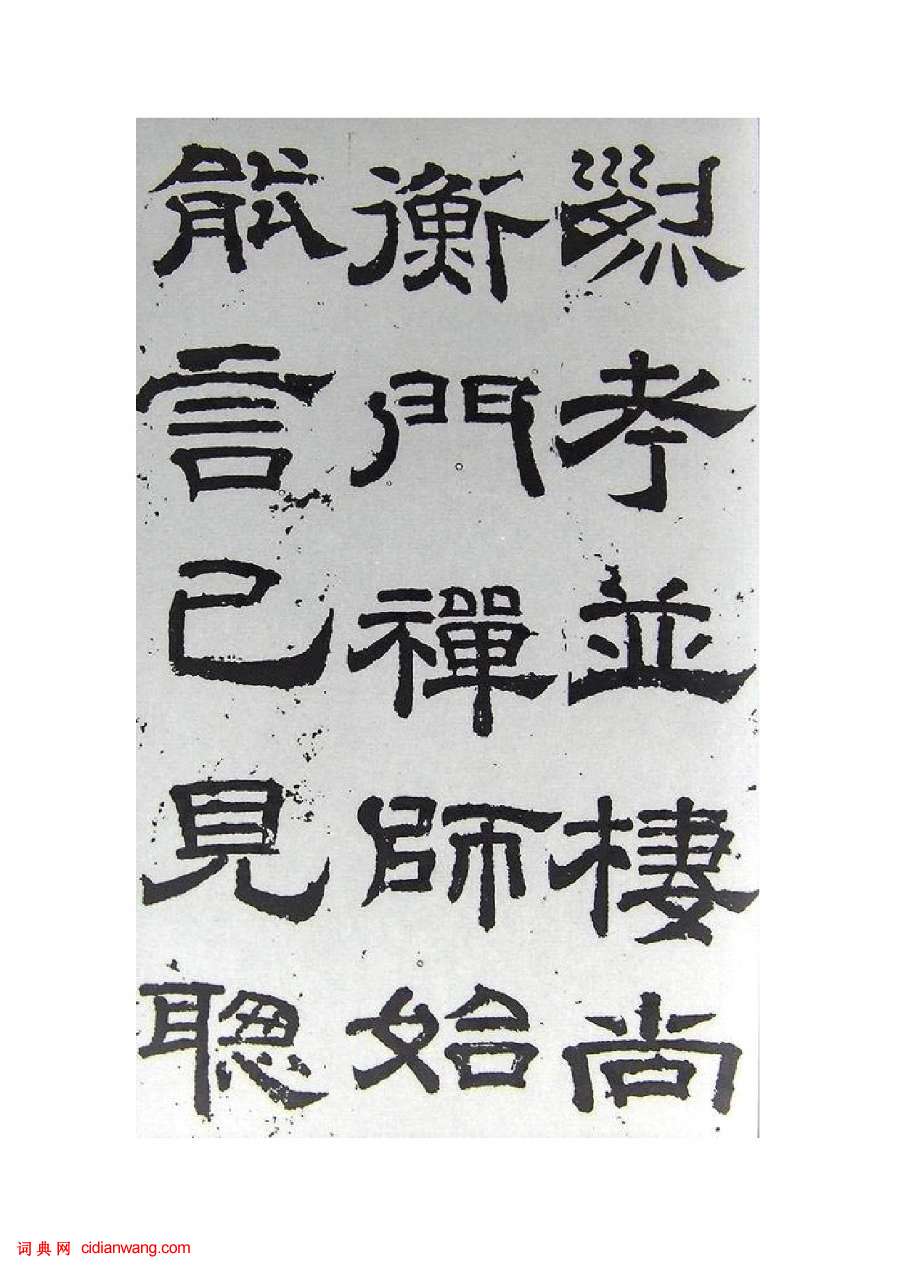 烈考並棲尚
衡門禪師始
能言已見聰
词典网 cidianwang.com